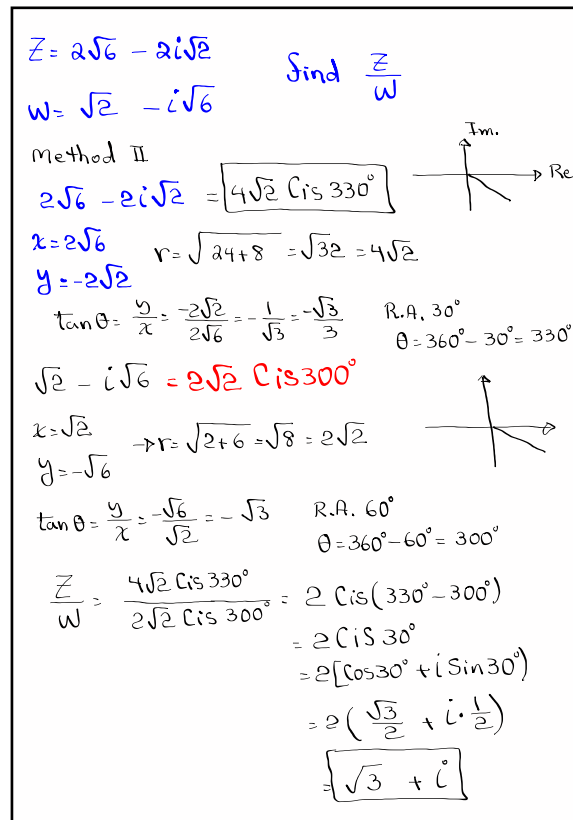 Z = 2√6 - 2i√2
find Z/W
W = √2 - i√6
Method II
Im.
Re
2√6 - 2i√2 = 4√2 Cis 330°
x = 2√6
r = √(24+8) = √32 = 4√2
y = -2√2
tan θ = y/x = -2√2/2√6 = -1/√3 = -√3/3
R.A. 30°
θ = 360° - 30° = 330°
√2 - i√6 = 2√2 Cis 300°
x = √2
→ r = √(2+6) = √8 = 2√2
y = -√6
tan θ = y/x = -√6/√2 = -√3
R.A. 60°
θ = 360° - 60° = 300°
Z/W = 4√2 Cis 330°/2√2 Cis 300° = 2 Cis(330° - 300°)
= 2 Cis 30°
= 2[Cos 30° + i Sin 30°)
= 2(√3/2 + i·1/2)
= √3 + i